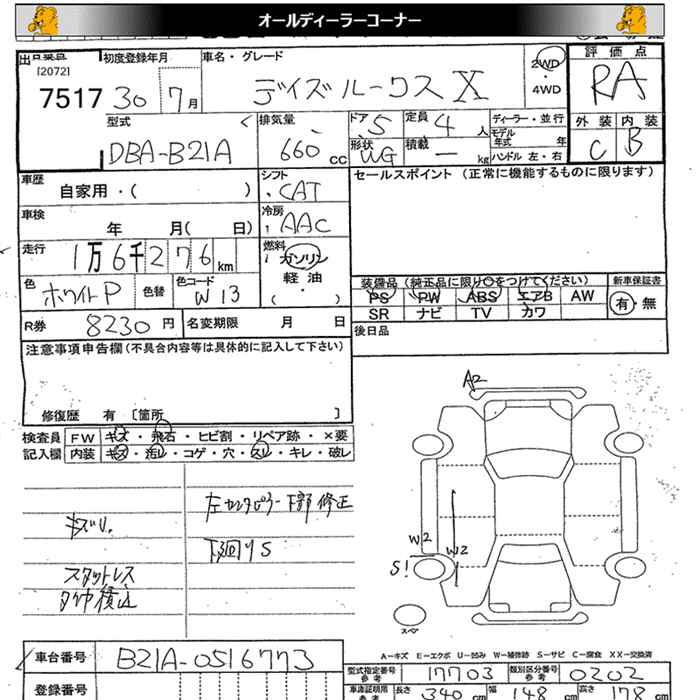 オールディーラーコーナー
出品票番 [2072] 7517
初度登録年月 30年 7月
車名・グレード デイズルークス X
2WD・4WD
評価点 RA
外装 C 内装 B
型式 DBA-B21A
排気量 660 cc
ドア 5 定員 4 人
形状 WG 積載 ー kg
ディーラー・並行
モデル年式 年
ハンドル 左・右
車歴 自家用・( )
シフト CAT
セールスポイント (正常に機能するものに限ります)
車検 年 月( 日)
冷房 AAC
走行 1万6千276km
燃料 ガソリン 軽油・( )
色 ホワイトP 色替 色コード W13
装備品 (純正品に限り○をつけてください)
新車保証書 有・無
PS PW ABS エアB AW
SR ナビ TV カワ
R券 8230 円 名変期限 月 日
後日品
注意事項申告欄 (不具合内容等は具体的に記入して下さい)
修復歴 有 [箇所 ]
検査員記入欄
FW キズ・飛石・ヒビ割・リペア跡・×要
内装 キズ・汚レ・コゲ・穴・スレ・キレ・破レ
左センタピラー下部修正
キズU.
下廻りS
スタットレス
タイヤ積込
A2
W2
W2
S!
スペア
A−キズ E−エクボ U−凹み W−補修跡 S−サビ C−腐食 XX−交換済
車台番号 B21A-0516773
型式指定番号 参考 17703 類別区分番号 参考 0202
登録番号
車庫証明用 参考 長さ 340 cm 幅 148 cm 高さ 178 cm